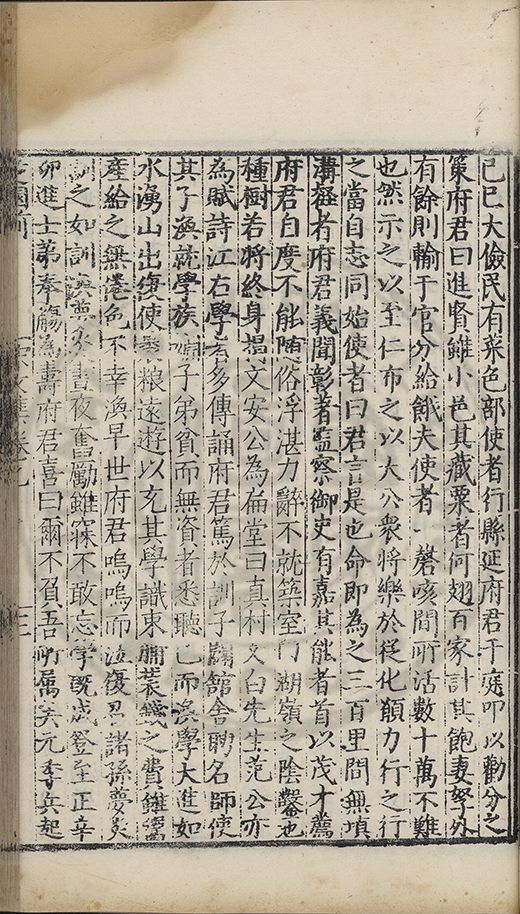 己巳大儉民有菜色部使者行縣延府君于庭叩以勸分之
策府君曰進賢雖小邑其藏粟者何翅百家計其飽妻孥外
有餘則輸于官分給餓夫使者一聲咳間所活數十萬不難
也然示之以至仁布之以大公衆將樂於從化願力行之行
之當自志同始使者曰君言是也命即為之三百里間無填
溝壑者府君義聞彰著監察御史有嘉其能者首以茂才薦
府君自度不能随俗浮湛力辭不就築室門湖嶺之隂鑿池
種樹若将終身揭文安公為扁堂曰真村文白先生范公亦
為賦詩江右學者多傳誦府君篤於訓子闢舘舍聘名師使
其子渙就學族婣子弟貧而無資者悉聽已而渙學大進如
水湧山出復使齎粮遠遊以充其學識束脯裝錢之費雖鬻
産給之無倦色不幸渙早世府君嗚嗚而泣復忍諸孫夢炎
之如訓渙夢炎晝夜奮勵雖寐不敢忘學既成登至正辛
卯進士第奉觴為壽府君喜曰爾不負吾所属矣元季兵起
文集卷之